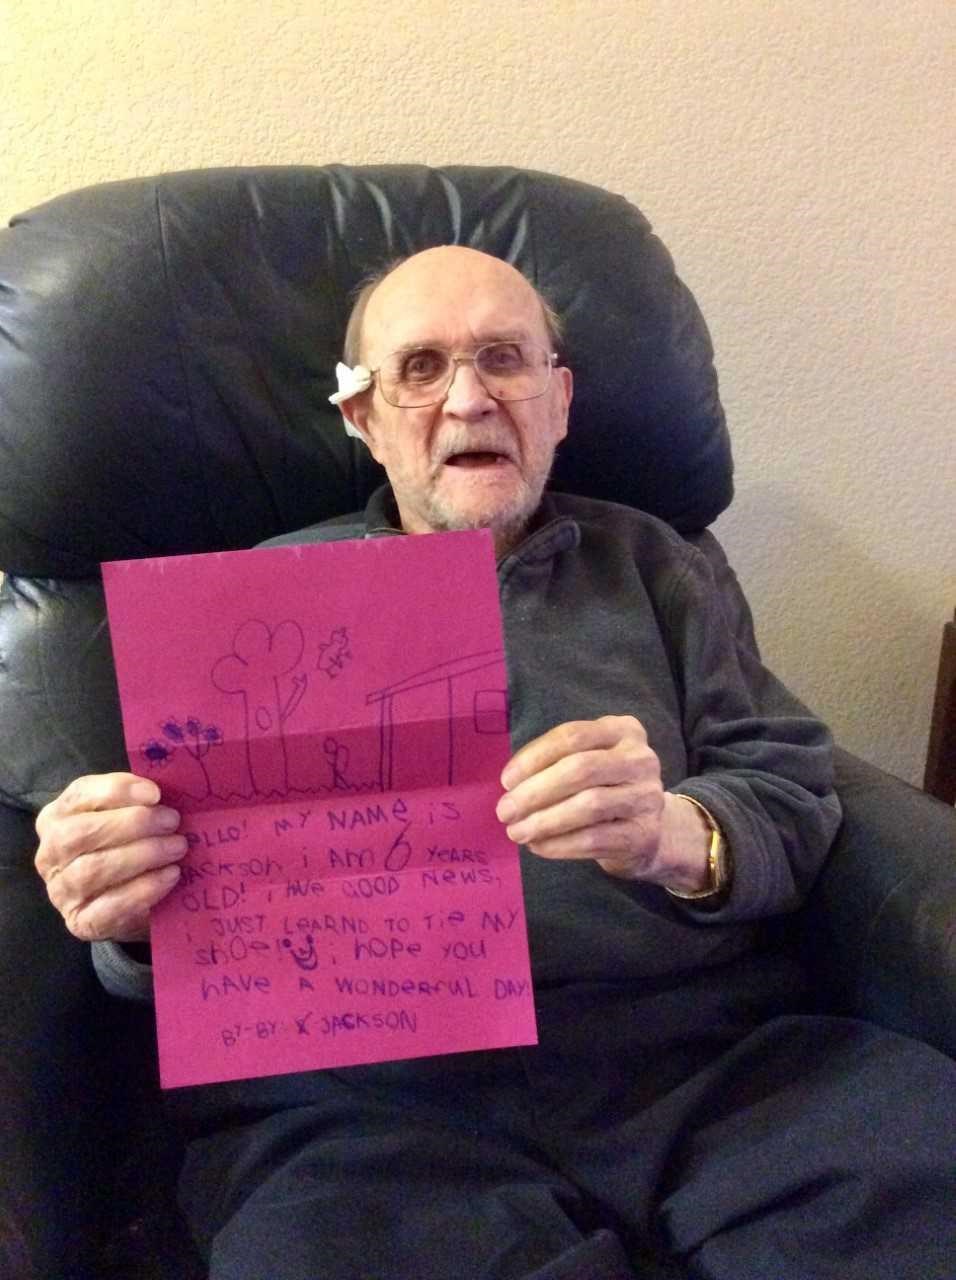 ello! MY NAMe iS
JACKSON i AM 6 YeARS
OLD! i hve GOOD News,
i JUST LeARND TO Tie MY
shoe! i hope you
hAve A WONDerfuL DAY!
BY-BY JACKSON